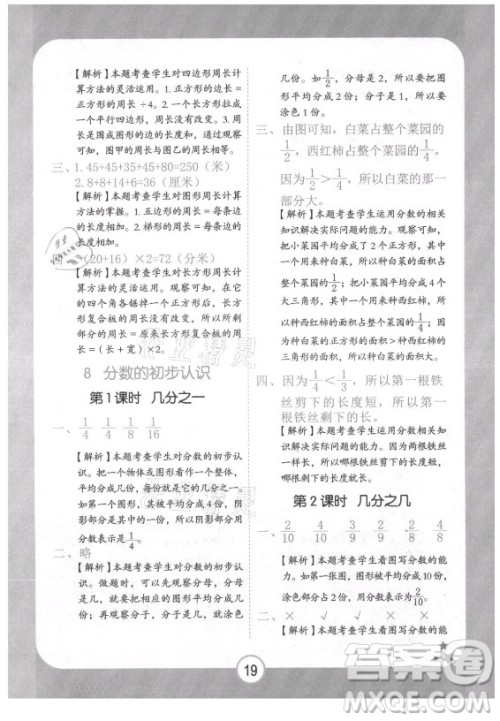 【解析】本题考查学生对四边形周长计
算方法的灵活运用。1.正方形的边长=
正方形的周长÷4。2.一个长方形拉成
一个平行四边形，周长没有改变。3.周
长是围成图形的边线的长度，通过观察
可知，图甲的周长与图乙的周长相等。
三、1.45+45+35+45+80=250（米）
2.8+8+14+6=36（厘米）
【解析】本题考查学生对图形周长计算
方法的掌握。1.五边形的周长=每条边
的长度相加。2.梯形的周长=每条边的
长度相加。
（20+16）×2=72（分米）
【解析】本题考查学生对长方形周长计
算方法的灵活运用。观察可知，在它
的四个角各锯掉一个正方形后，长方形
复合板的周长没有改变，所以所剩
部分的周长=原来长方形复合板的周长=
（长+宽）×2。
8 分数的初步认识
第1课时 几分之一
一、1/4 1/4 1/8 1/16
【解析】本题考查学生对分数的初步认
识。把一个物体或图形看作一个整体，
平均分成几份，每份就是它的几分之
一。把这个图形平均分成4份，阴
影部分是其中的1份，所以阴影部分
是它的1/4。
二、略
【解析】本题考查学生对分数的初步认
识。可以先观察分数，分母是几就平均
分成几份，分子是几，就涂色
几份。如1/2，分母是2，所以要把图
形平均分成2份；分子是1，所以要
涂色1份。
三、由图可知，白菜占整个菜园的
1/2，西红柿占整个菜园的1/4。
因为1/2>1/4，所以种白菜的一
部分大。
【解析】本题考查学生运用分数的相关
知识解决实际问题的能力。观察图形可
知，把小菜园平均分成了2个正方形，其
中一个用来种白菜，所以种白菜的面积
占整个菜园的1/2；把小菜园平均分成4个
三角形，其中一个用来种西红柿，所
以种西红柿的面积占整个菜园的1/4。因
为种白菜的正方形面积>种西红柿的
三角形的面积，所以种白菜的部分大。
四、因为1/4<1/3，所以第一根铁
丝剪下的长度短，所以第一
根的铁丝剩下的长。
【解析】本题考查学生运用分数的相关
知识解决问题的能力。两根铁丝同样
长，所以哪根铁丝剪下的长度短，哪根
剩下的就长。
第2课时 几分之几
一、2/10 4/10 9/10 8/10 2/6 4/8
【解析】本题考查学生看图写分数的能
力。如第一幅图，图形被平均分成10份，
涂色部分占2份，用分数表示为2/10。
二、× √ × √
【解析】本题考查学生看图写分数的能
19
答案圈
MXQE.COM